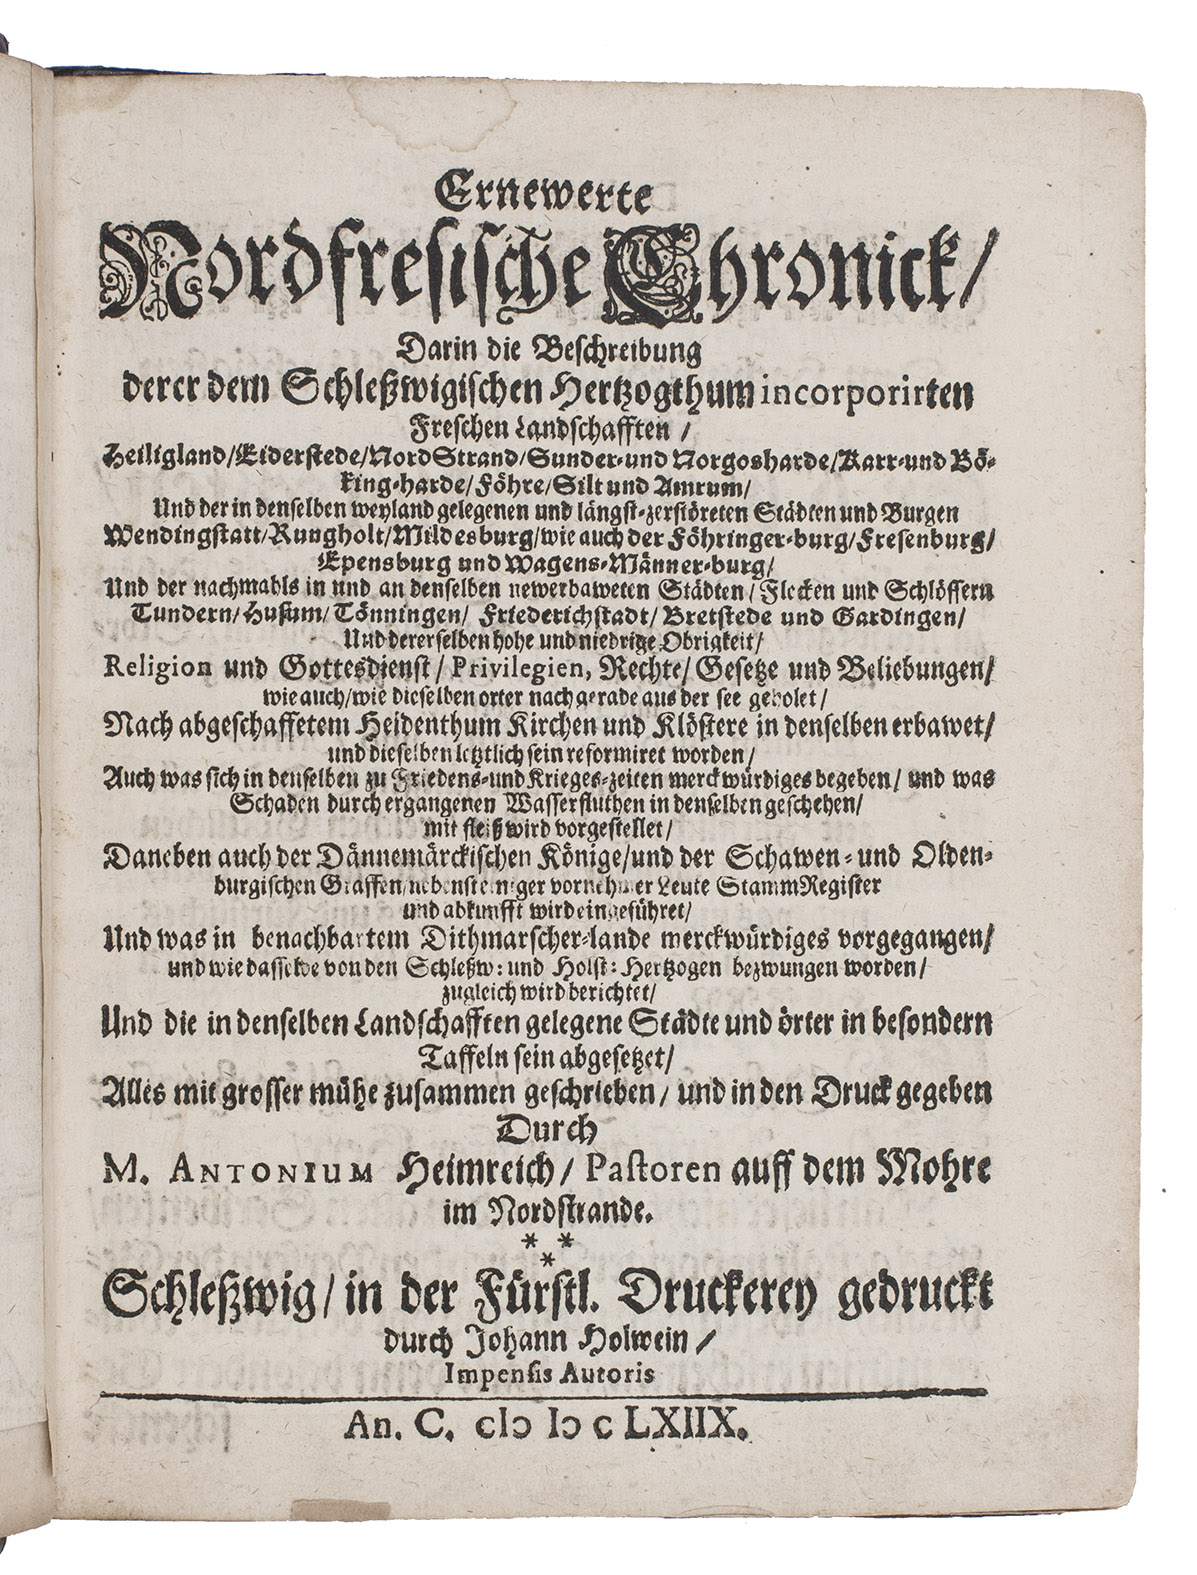 Ernewerte
Nordfresische Chronick/
Darin die Beschreibung
derer dem Schleßwigischen Hertzogthum incorporirten
Freschen Landschafften /
Heiligland/Eiderstede/NordStrand/Sunder-und Norgosharde/Karr-und Bö-
king-harde/Föhre/Silt und Amrum/
Und der in denselben weyland gelegenen und längst-zerstöreten Städten und Burgen
Wendingstatt/Rungholt/Mildesburg/wie auch der Föhringer-burg/Fresenburg/
Epensburg und Wagens-Männer-burg/
Und der nachmahls in und an denselben newerbaweten Städten/Flecken und Schlössern
Tundern/Husum/Tönningen/ Friederichstadt/Bretstede und Gardingen/
Und dererselben hohe und niedrige Obrigkeit/
Religion und Gottesdienst/Privilegien, Rechte/Gesetze und Beliebungen/
wie auch/wie dieselben örter nach gerade aus der see geholet/
Nach abgeschaffetem Heidenthum Kirchen und Klöstere in denselben erbawet/
und dieselben letztlich sein reformiret worden/
Auch was sich in denselben zu Friedens-und Krieges-zeiten merckwürdiges begeben/ und was
Schaden durch ergangenen Wasserfluthen in denselben geschehen/
mit fleiß wird vorgestellet/
Daneben auch der Dännemärckischen Könige/und der Schawen-und Olden-
burgischen Graffen/nebenst einiger vornehmer Leute StammRegister
und abkunfft wird eingeführet/
Und was in benachbartem Dithmarscher-lande merckwürdiges vorgegangen/
und wie dasselbe von den Schleßw: und Holst: Hertzogen bezwungen worden/
zugleich wird berichtet/
Und die in denselben Landschafften gelegene Städte und örter in besondern
Taffeln sein abgesetzet/
Alles mit grosser mühe zusammen geschrieben/ und in den Druck gegeben
Durch
M. ANTONIUM Heimreich/ Pastoren auff dem Mohre
im Nordstrande.
* *
*
Schleßwig/ in der Fürstl. Druckerey gedruckt
durch Johann Holwein/
Impensis Autoris
An. C. cIɔ Iɔ c LXIIX.